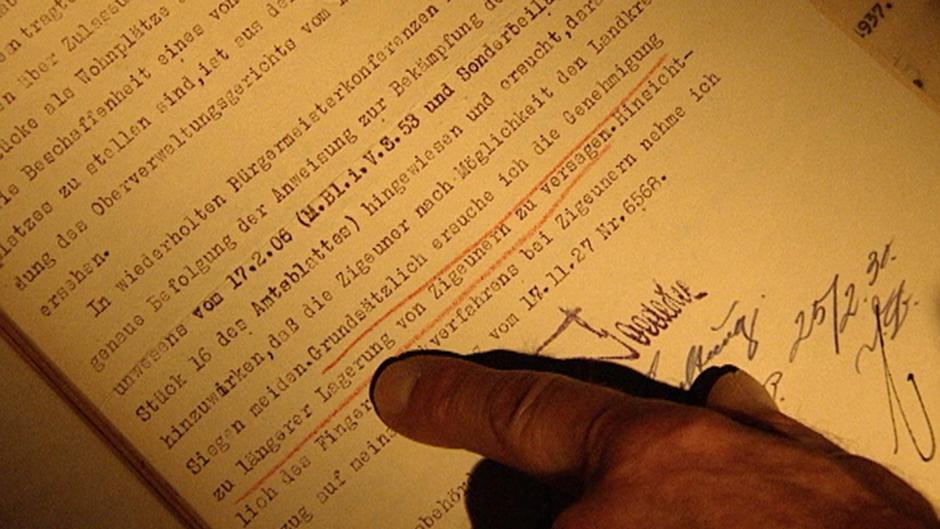 1937.
n über Zulassu
ücke als Wohnplätze a
Beschaffenheit eines von
latzes zu stellen sind,ist aus de
dung des Oberverwaltungsgerichts vom
ersehen.
In wiederholten Bürgermeisterkonferenzen
genaue Befolgung der Anweisung zur Bekämpfung de
unwesens vom 17.2.06 (M.Bl.i.V.S.53 und Sonderbeila
Stück 16 des Amtsblattes) hingewiesen und ersucht, dara
hinzuwirken,daß die Zigeuner nach Möglichkeit den Landkre
Siegen meiden.Grundsätzlich ersuche ich die Genehmigung
zu längerer Lagerung von Zigeunern zu versagen.Hinsicht-
lich des Finger verfahrens bei Zigeunern nehme ich
zug auf mein vom 17.11.27 Nr.6568.
25/2.30.